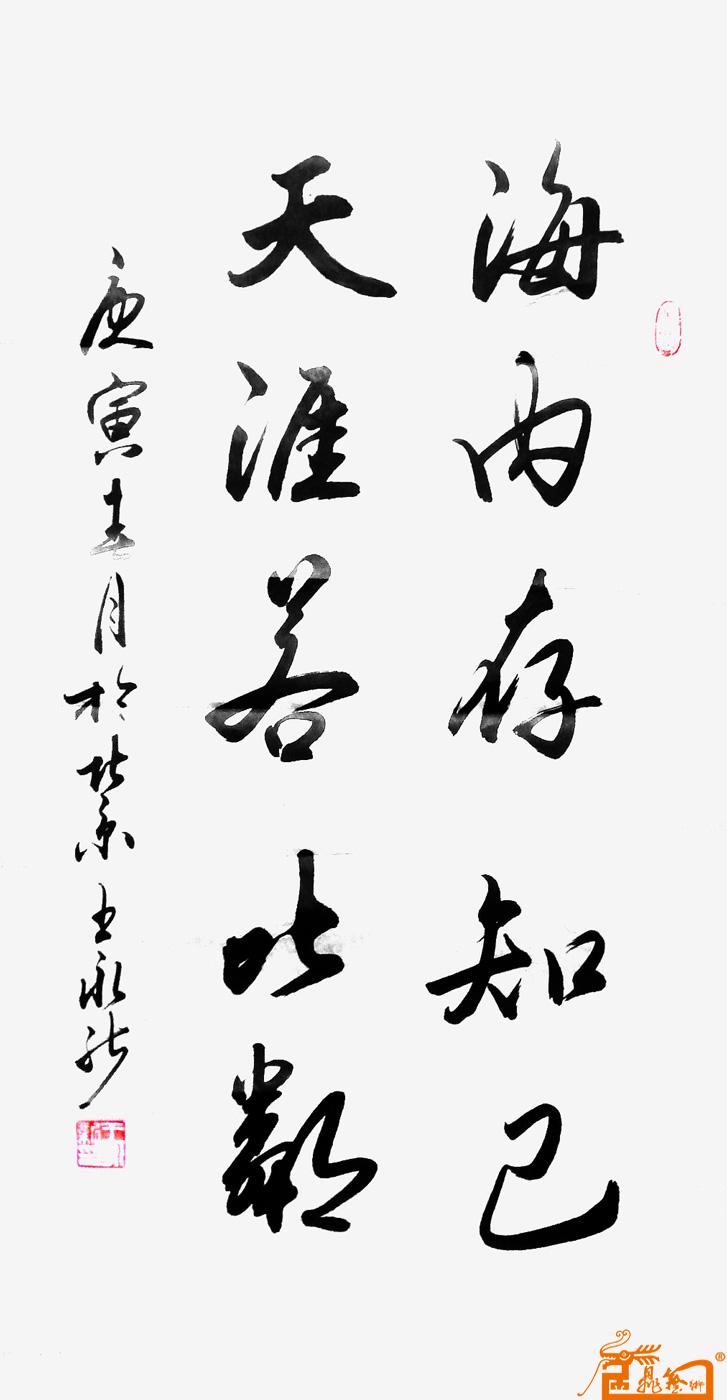 海内存知己
天涯若比鄰
庚寅春月於北京王永